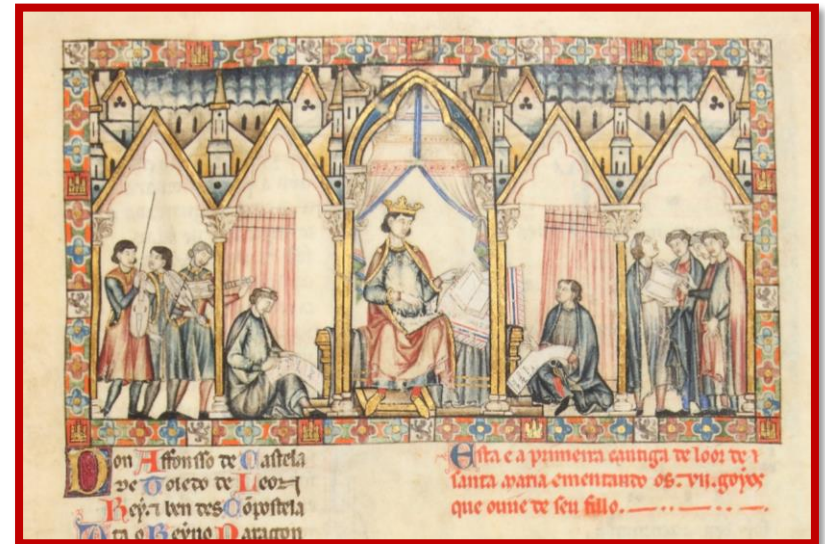 Don Affonsso de Castela
de Toledo de Leon
Rey. τ ben des Cõpostela
Ata o Reyno Daragon
Esta e a primeira cantiga de loor de
santa maria ementando os .vii. goyos
que ouue de seu fillo.